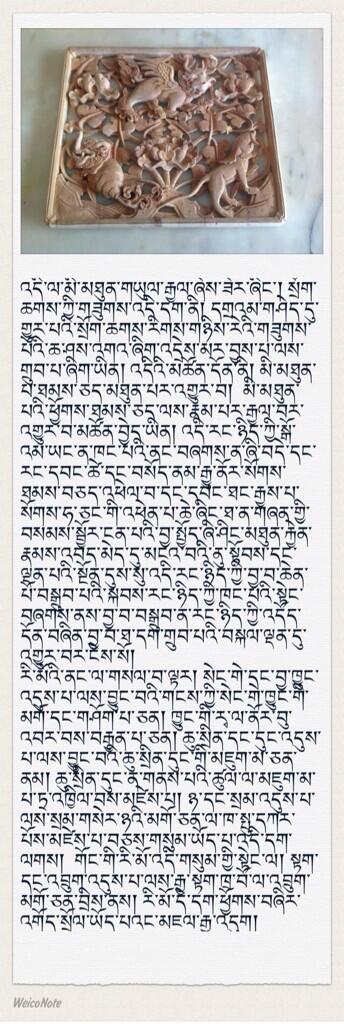 འདི་ལ་མི་མཐུན་གཡུལ་རྒྱལ་ཞེས་ཟེར་ཞིང་། སྲོག་
ཆགས་ཀྱི་གཟུགས་འདི་དག་ནི། དགྲའམ་གཤེད་དུ་
གྱུར་པའི་སྲོག་ཆགས་རིགས་གཉིས་རེའི་གཟུགས་
པོའི་ཆ་ཤས་འགའ་ཞིག་འདྲེས་མར་བྱས་པ་ལས་
གྲུབ་པ་ཞིག་ཡིན། འདིའི་མཚོན་དོན་ནི། མི་མཐུན་
པ་ཐམས་ཅད་མཐུན་པར་འགྱུར་བ། མི་མཐུན་
པའི་ཕྱོགས་ཐམས་ཅད་ལས་རྣམ་པར་རྒྱལ་བར་
འགྱུར་བ་མཚོན་བྱེད་ཡིན། འདི་རང་ཉིད་ཀྱི་སྒོ་
འམ་ཡང་ན་ཁང་པའི་ནང་བཞགས་ན་ཞི་བདེ་དང་
རང་དབང་ཚེ་དང་བསོད་ནམས་རྒྱུ་ནོར་སོགས་
ཐམས་བཅད་འཕེལ་བ་དང་དགེང་ཐང་རྒྱས་པ་
སོགས་ཧ་ཅང་གི་འཕེན་པ་ཆེ་ཞིང་ཐ་ན་གཞན་གྱི་
བསམས་སྦྱོར་ངན་པའི་བྱ་སྤྱོད་ཞི་ཤིང་མཐུན་རྐྱེན་
རྣམས་འབད་མེད་དུ་མངའ་བའི་ནུ་སྟོབས་དང་
ལྡན་པའི་སྔོན་དུས་སུ་འདི་རང་ཉིད་ཀྱི་བྱ་བ་ཆེན་
པོ་བསྒྲུབ་པའི་སྐབས་རང་ཉིད་ཀྱི་ཁང་པའི་སྟེང་
བཞགས་ནས་བྱ་བ་བསྒྲུབ་ན་རང་ཉིད་ཀྱི་འདོད་
དོན་བཞིན་བྱ་བ་ཐ་དག་གྲུབ་པའི་བསྐལ་ལྡན་དུ་
འགྱུར་བར་ངེས་སོ།
རི་མོའི་ནང་ལ་གསལ་བ་ལྟར། སེང་གེ་དང་བྱ་ཁྱུང་
འདུས་པ་ལས་བྱུང་བའི་གངས་ཀྱི་སེང་གེ་ཁྱུང་གི་
མགོ་དང་གཤོག་པ་ཅན། ཁྱུང་གི་རྭ་ལ་ནོར་བུ་
འབར་བས་བརྒྱན་པ་ཅན། ཆུ་སྲིན་དང་དུང་འདུས་
པ་ལས་བྱུང་བའི་ཆུ་སྲིན་དུང་གི་མཇུག་མ་ཅན་
ནམ། ཆུ་སྲིན་དུང་ན་གནས་པའི་ཚུལ་ལ་མཇུག་མ་
པ་ཏྲ་འཁྱིལ་བས་མཛེས་པ། ཉ་དང་སྲམ་འདུས་པ་
ལས་སྲམ་གསེར་ཉའི་མགོ་ཅན་ལ་ཁ་སྤུ་དཀར་
པོས་མཛེས་པ་བཅས་གསུམ་ཡོད་པ་འདི་དག་
ལགས། གོང་གི་རི་མོ་འདི་གསུམ་གྱི་སྟེང་ལ། སྟག་
དང་འབྲུག་འདུས་པ་ལས་རྒྱ་སྟག་ཁྲ་བོ་ལ་འབྲུག་
མགོ་ཅན་བྲིས་ནས། རི་མོ་དེ་དག་ཕྱོགས་བཞིར་
འགོད་སྲོལ་ཡོད་པའང་མཇལ་རྒྱུ་འདུག།
WeicoNote